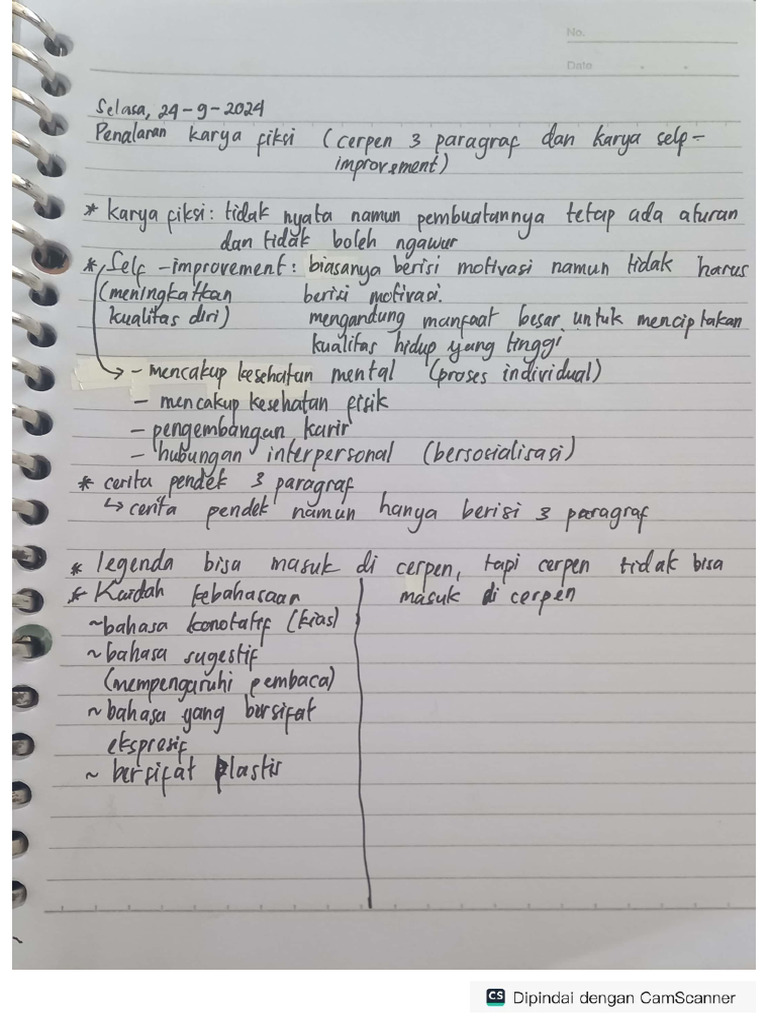 No.
Date
Selasa, 24-9-2024
Penalaran karya fiksi (cerpen 3 paragraf dan karya self-
improvement)
* karya fiksi : tidak nyata namun pembuatannya tetap ada aturan
dan tidak boleh ngawur
* Self-improvement : biasanya berisi motivasi namun tidak harus
(meningkatkan berisi motivasi.
kualitas diri) mengandung manfaat besar untuk menciptakan
kualitas hidup yang tinggi
→ - mencakup kesehatan mental (proses individual)
- mencakup kesehatan fisik
- pengembangan karir
- hubungan interpersonal (bersocialisasi)
* cerita pendek 3 paragraf
↳ cerita pendek namun hanya berisi 3 paragraf
* legenda bisa masuk di cerpen, tapi cerpen tidak bisa
masuk di cerpen
* Kaidah kebahasaan
~ bahasa konotatif (kias)
~ bahasa sugestif
(mempengaruhi pembaca)
~ bahasa yang bersifat
ekspresif
~ bersifat plastis
CS Dipindai dengan CamScanner